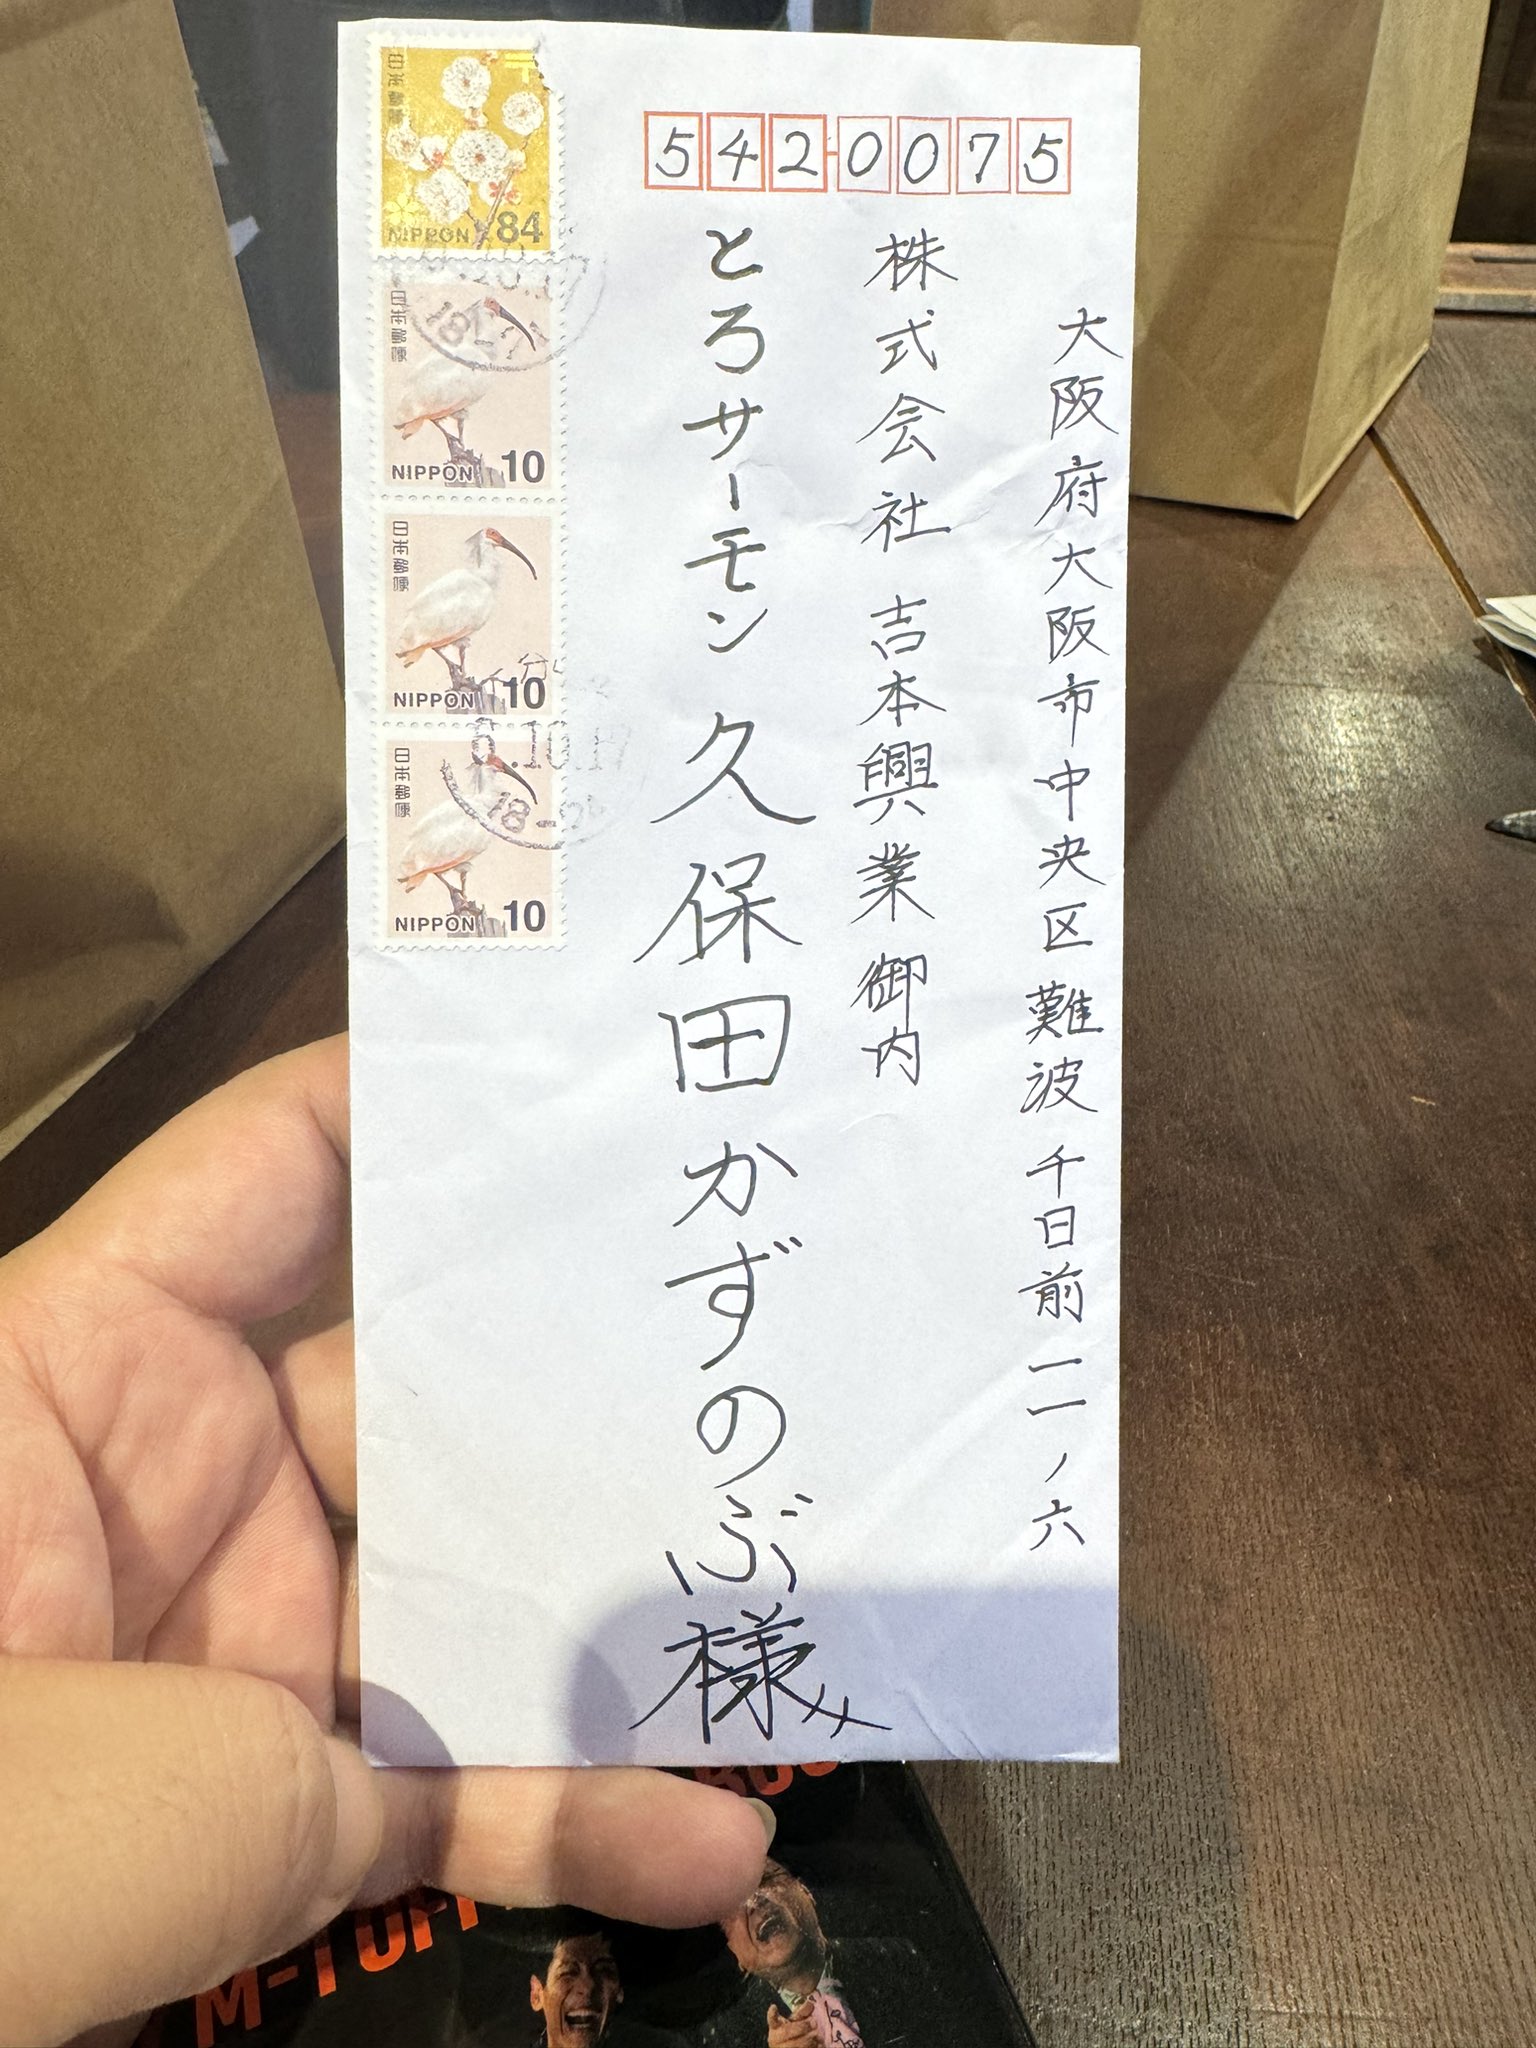 5420075
大阪府大阪市中央区難波千日前一一ノ六
株式会社 吉本興業 御内
とろサーモン 久保田かずのぶ様
日本郵便
NIPPON 84
日本郵便
NIPPON 10
日本郵便
NIPPON 10
日本郵便
NIPPON 10
6.10.17
M-1